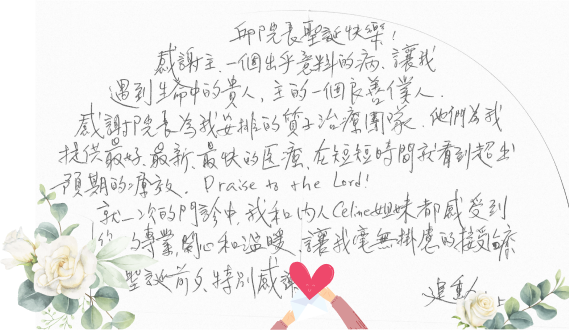 邱院長聖誕快樂!
感謝主.一個出乎意料的病.讓我
遇到生命中的貴人,主的一個良善僕人.
感謝院長為我安排的質子治療團隊.他們為我
提供最好.最新.最快的医療,在短短時間就看到超出
預期的療效. Praise to the Lord!
就一次的門診中,我和内人Celine姐妹都感受到
的專業,関心和溫暖,讓我毫無掛慮的接受治療
聖誕前夕,特別感謝